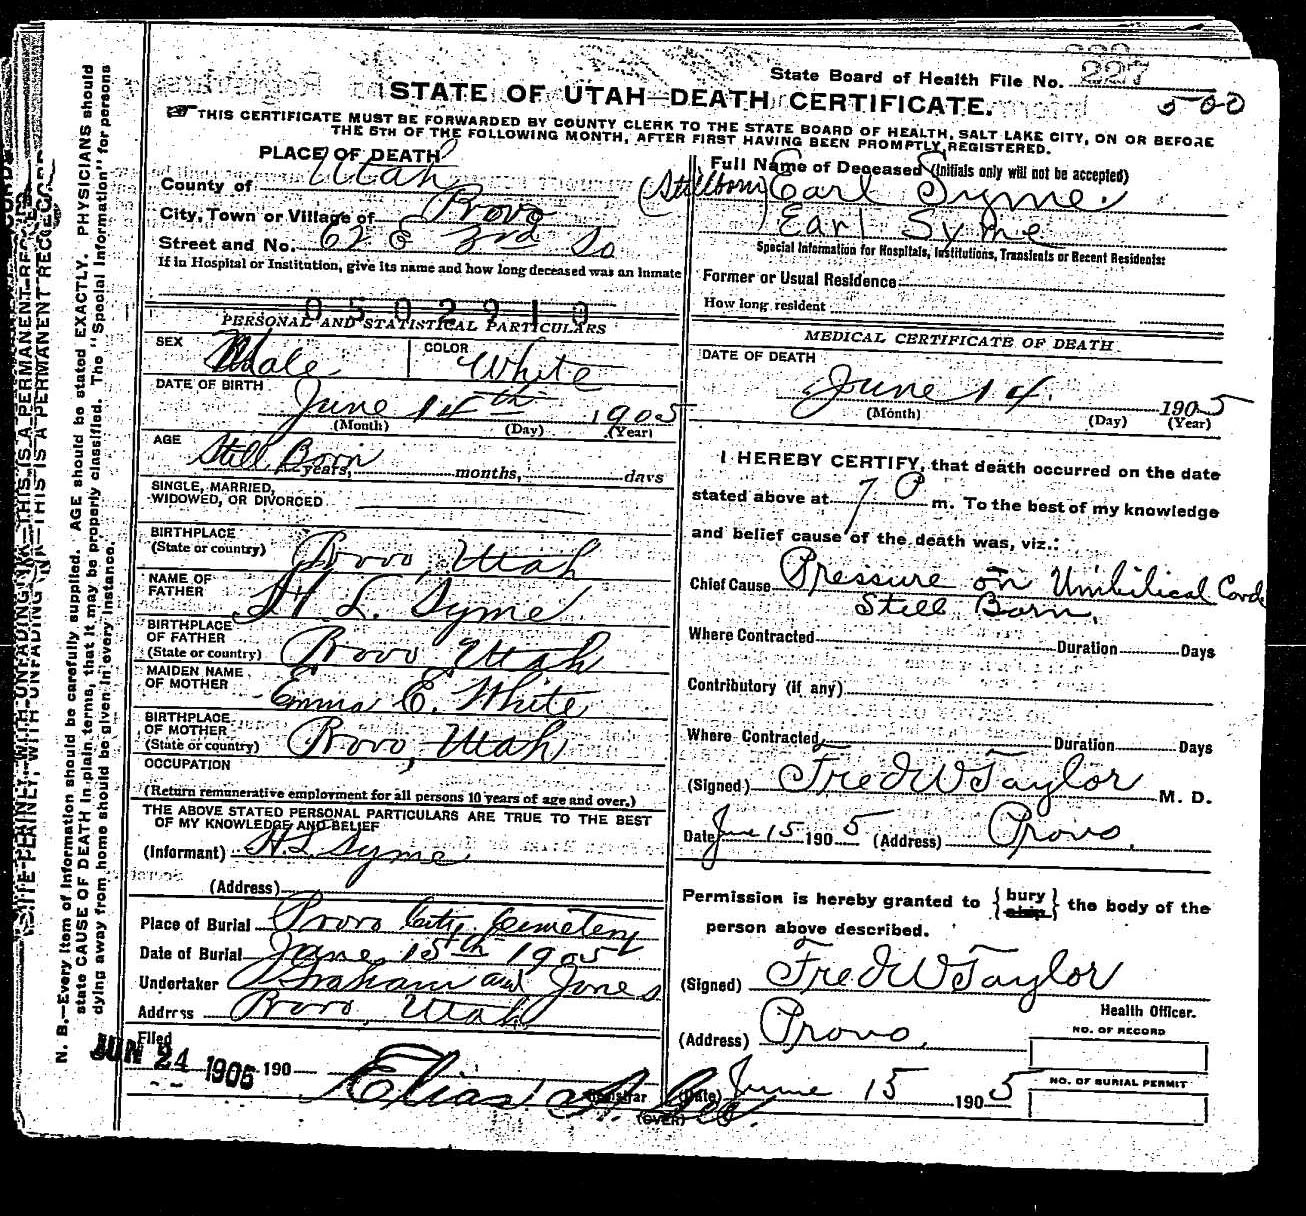 State Board of Health File No. 227
500
STATE OF UTAH—DEATH CERTIFICATE.
THIS CERTIFICATE MUST BE FORWARDED BY COUNTY CLERK TO THE STATE BOARD OF HEALTH, SALT LAKE CITY, ON OR BEFORE
THE 5TH OF THE FOLLOWING MONTH, AFTER FIRST HAVING BEEN PROMPTLY REGISTERED.
PLACE OF DEATH
County of Utah
City, Town or Village of Provo
Street and No. 62 E 3rd So
If in Hospital or Institution, give its name and how long deceased was an inmate
0502910
Full Name of Deceased (Initials only will not be accepted)
(Stillborn) Earl Syme.
Earl Syme
Special Information for Hospitals, Institutions, Transients or Recent Residents:
Former or Usual Residence
How long resident
PERSONAL AND STATISTICAL PARTICULARS
SEX Male COLOR White
DATE OF BIRTH
June 14th 1905
(Month) (Day) (Year)
AGE
Still Born years, months, days
SINGLE, MARRIED,
WIDOWED, OR DIVORCED
BIRTHPLACE
(State or country) Provo, Utah
NAME OF
FATHER H L Syme
BIRTHPLACE
OF FATHER
(State or country) Provo Utah
MAIDEN NAME
OF MOTHER Emma E. White
BIRTHPLACE
OF MOTHER
(State or country) Provo, Utah
OCCUPATION
(Return remunerative employment for all persons 10 years of age and over.)
THE ABOVE STATED PERSONAL PARTICULARS ARE TRUE TO THE BEST
OF MY KNOWLEDGE AND BELIEF
(Informant) H.L. Syme
(Address)
Place of Burial Provo City Cemetery
Date of Burial June 15th 1905
Undertaker Graham and Jones
Address Provo, Utah
Filed
JUN 24 1905 190
Elias A. Gee.
Registrar
(OVER)
MEDICAL CERTIFICATE OF DEATH
DATE OF DEATH
June 14. 1905
(Month) (Day) (Year)
I HEREBY CERTIFY, that death occurred on the date
stated above at 7 P m. To the best of my knowledge
and belief cause of the death was, viz.:
Chief Cause Pressure on Umbilical Cord
Still Born.
Where Contracted Duration Days
Contributory (if any)
Where Contracted Duration Days
(Signed) Fred W Taylor M. D.
Date June 15 1905 (Address) Provo.
Permission is hereby granted to {bury ship} the body of the
person above described.
(Signed) Fred W Taylor
Health Officer.
(Address) Provo.
NO. OF RECORD
(Date) June 15 1905
NO. OF BURIAL PERMIT
WRITE PLAINLY, WITH UNFADING INK—THIS IS A PERMANENT RECORD
N. B.—Every item of information should be carefully supplied. AGE should be stated EXACTLY. PHYSICIANS should
state CAUSE OF DEATH in plain terms, that it may be properly classified. The "Special Information" for persons
dying away from home should be given in every instance.